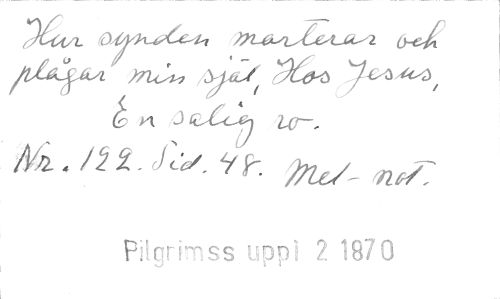 Hur synden marterar och
plågar min själ, Hos Jesus,
En salig ro.
Nr. 122. Sid. 48. Mel-not.
Pilgrimss uppl 2 1870